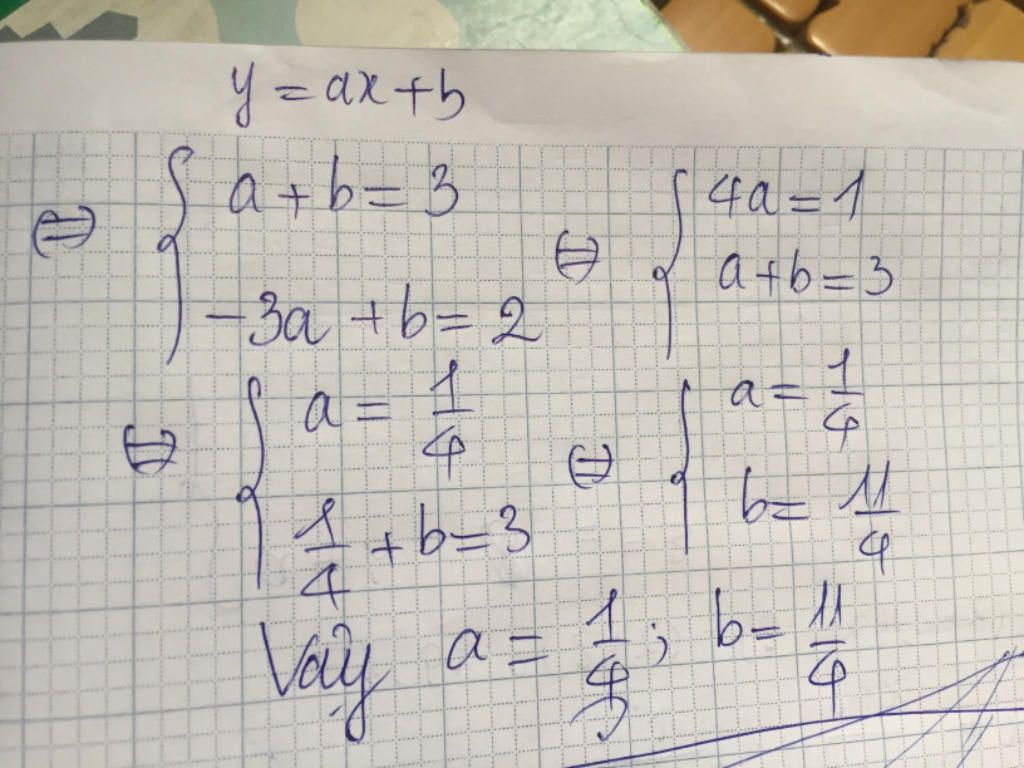 y = ax + b
⇔ { a + b = 3
-3a + b = 2
⇔ { 4a = 1
a + b = 3
⇔ { a = 1/4
1/4 + b = 3
⇔ { a = 1/4
b = 11/4
Vậy a = 1/4 ; b = 11/4